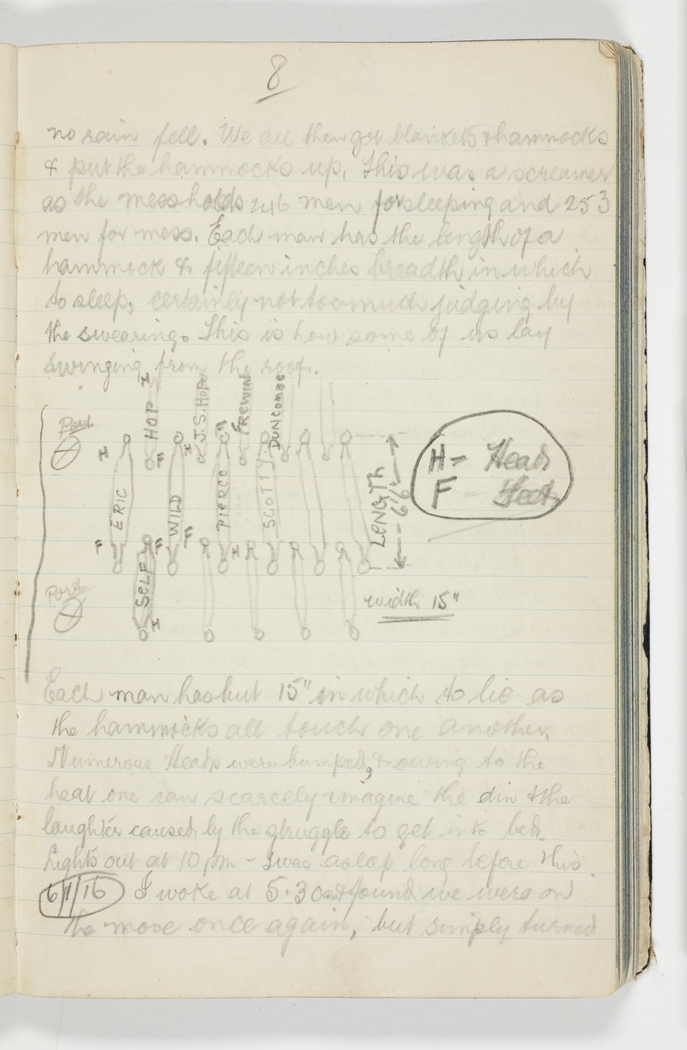 8
no rain fell. We all then got blankets & hammocks
& put the hammocks up. This was a screamer
as the mess holds 246 men for sleeping and 253
men for mess. Each man has the length of a
hammock & fifteen inches breadth in which
to sleep, certainly not too much judging by
the swearing. This is how some of us lay
swinging from the roof.
Port
H
ERIC
F
HOP
H
F
WILD
H
F
J.S. HOP
PIERCE
H
FREWIN
SCOTTY
DUNCOMBE
LENGTH
6'6"
H - Head
F Feet
Port
SELF
F
H
width 15"
Each man has but 15" in which to lie as
the hammocks all touch one another.
Numerous Heads were bumped, & owing to the
heat one can scarcely imagine the din & the
laughter caused by the struggle to get into bed.
Lights out at 10 pm - I was asleep long before this.
6/1/16 I woke at 5.30 and found we were on
the move once again, but simply turned